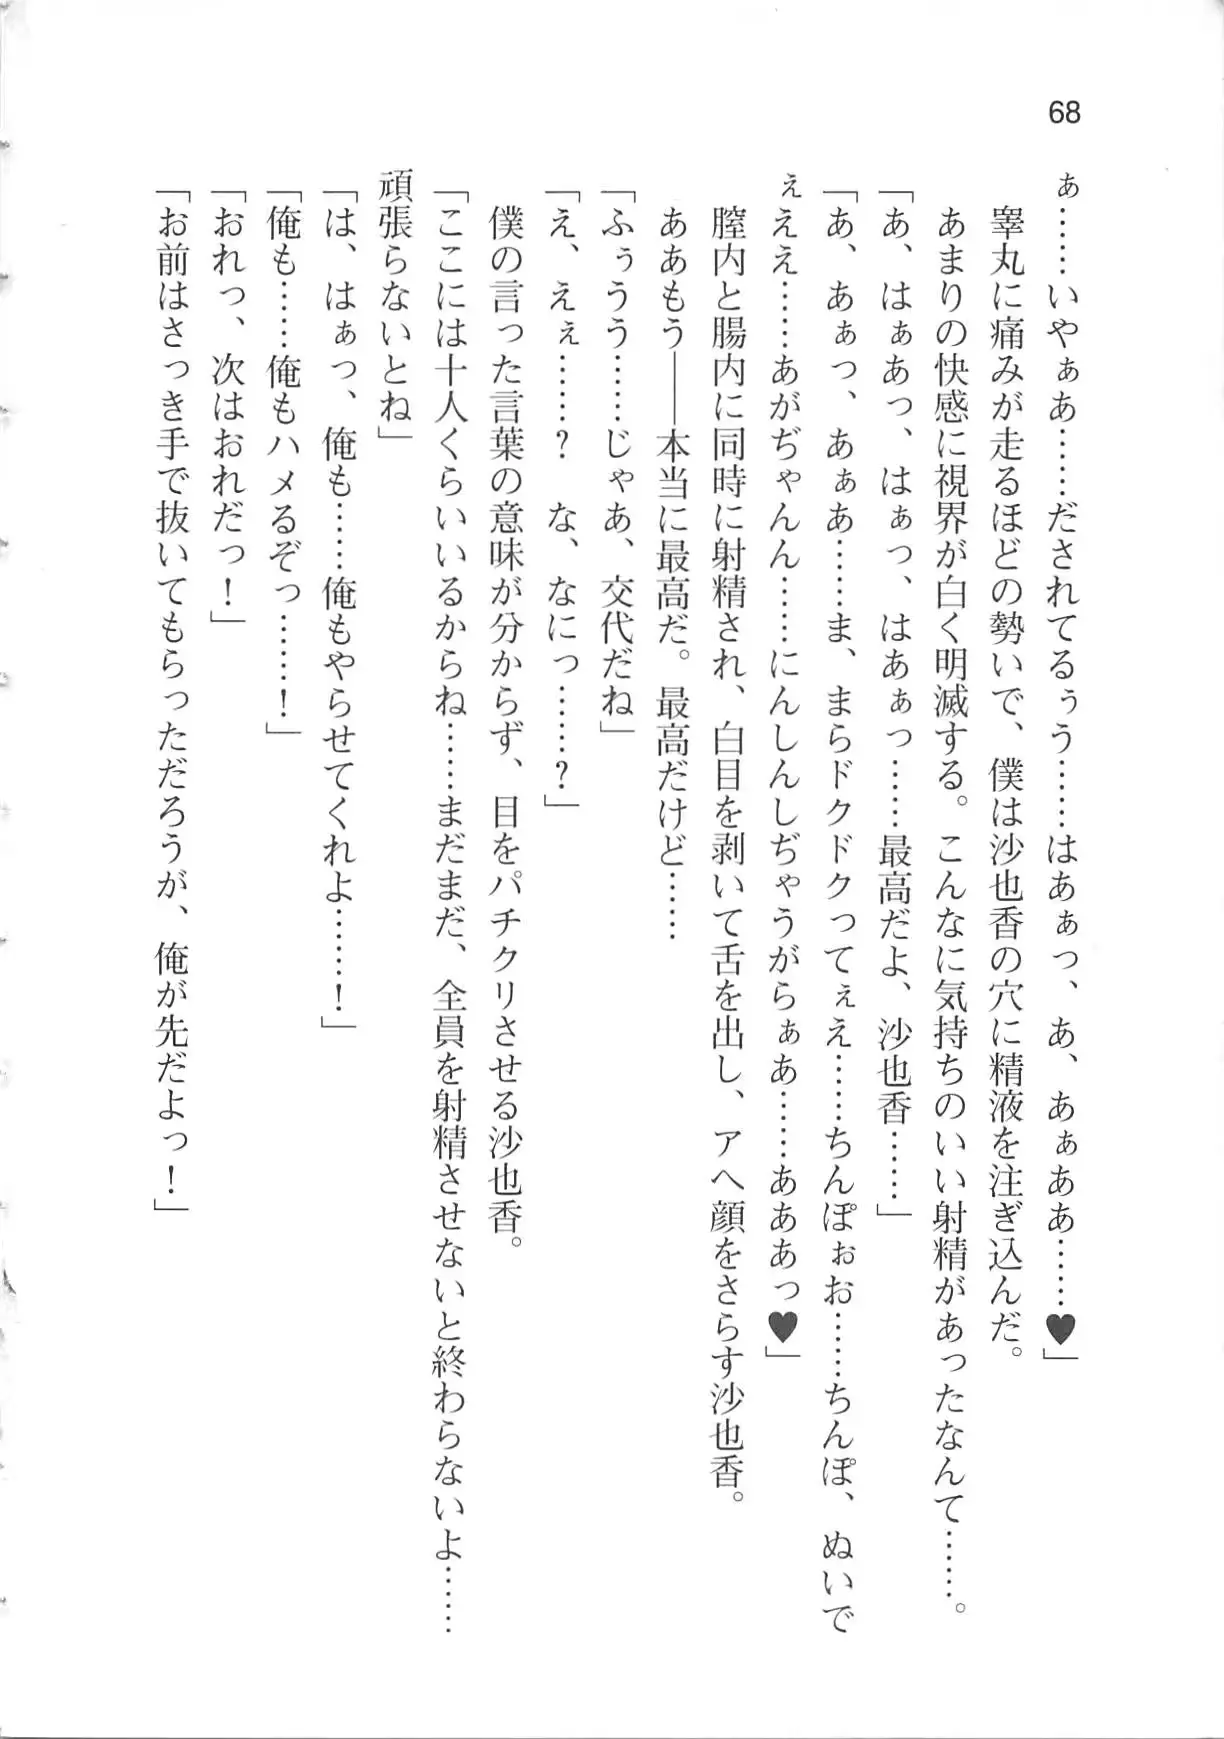 68
ぁ……いやぁあ……だされてるぅう……はあぁっ、あ、あぁああ……♥」
睾丸に痛みが走るほどの勢いで、僕は沙也香の穴に精液を注ぎ込んだ。
あまりの快感に視界が白く明滅する。こんなに気持ちのいい射精があったなんて……。
「あ、はぁあっ、はぁっ、はあぁっ……最高だよ、沙也香……」
「あ、あぁっ、あぁあ……ま、まらドクドクってぇえ……ちんぽぉお……ちんぽ、ぬいで
ぇええ……あがぢゃんん……にんしんしぢゃうがらぁあ……あああっ♥」
膣内と腸内に同時に射精され、白目を剥いて舌を出し、アヘ顔をさらす沙也香。
ああもう――本当に最高だ。最高だけど……
「ふぅうう……じゃあ、交代だね」
「え、えぇ……？　な、なにっ……？」
僕の言った言葉の意味が分からず、目をパチクリさせる沙也香。
「ここには十人くらいいるからね……まだまだ、全員を射精させないと終わらないよ……
頑張らないとね」
「は、はぁっ、俺も……俺もやらせてくれよ……！」
「俺も……俺もハメるぞっ……！」
「おれっ、次はおれだっ！」
「お前はさっき手で抜いてもらっただろうが、俺が先だよっ！」